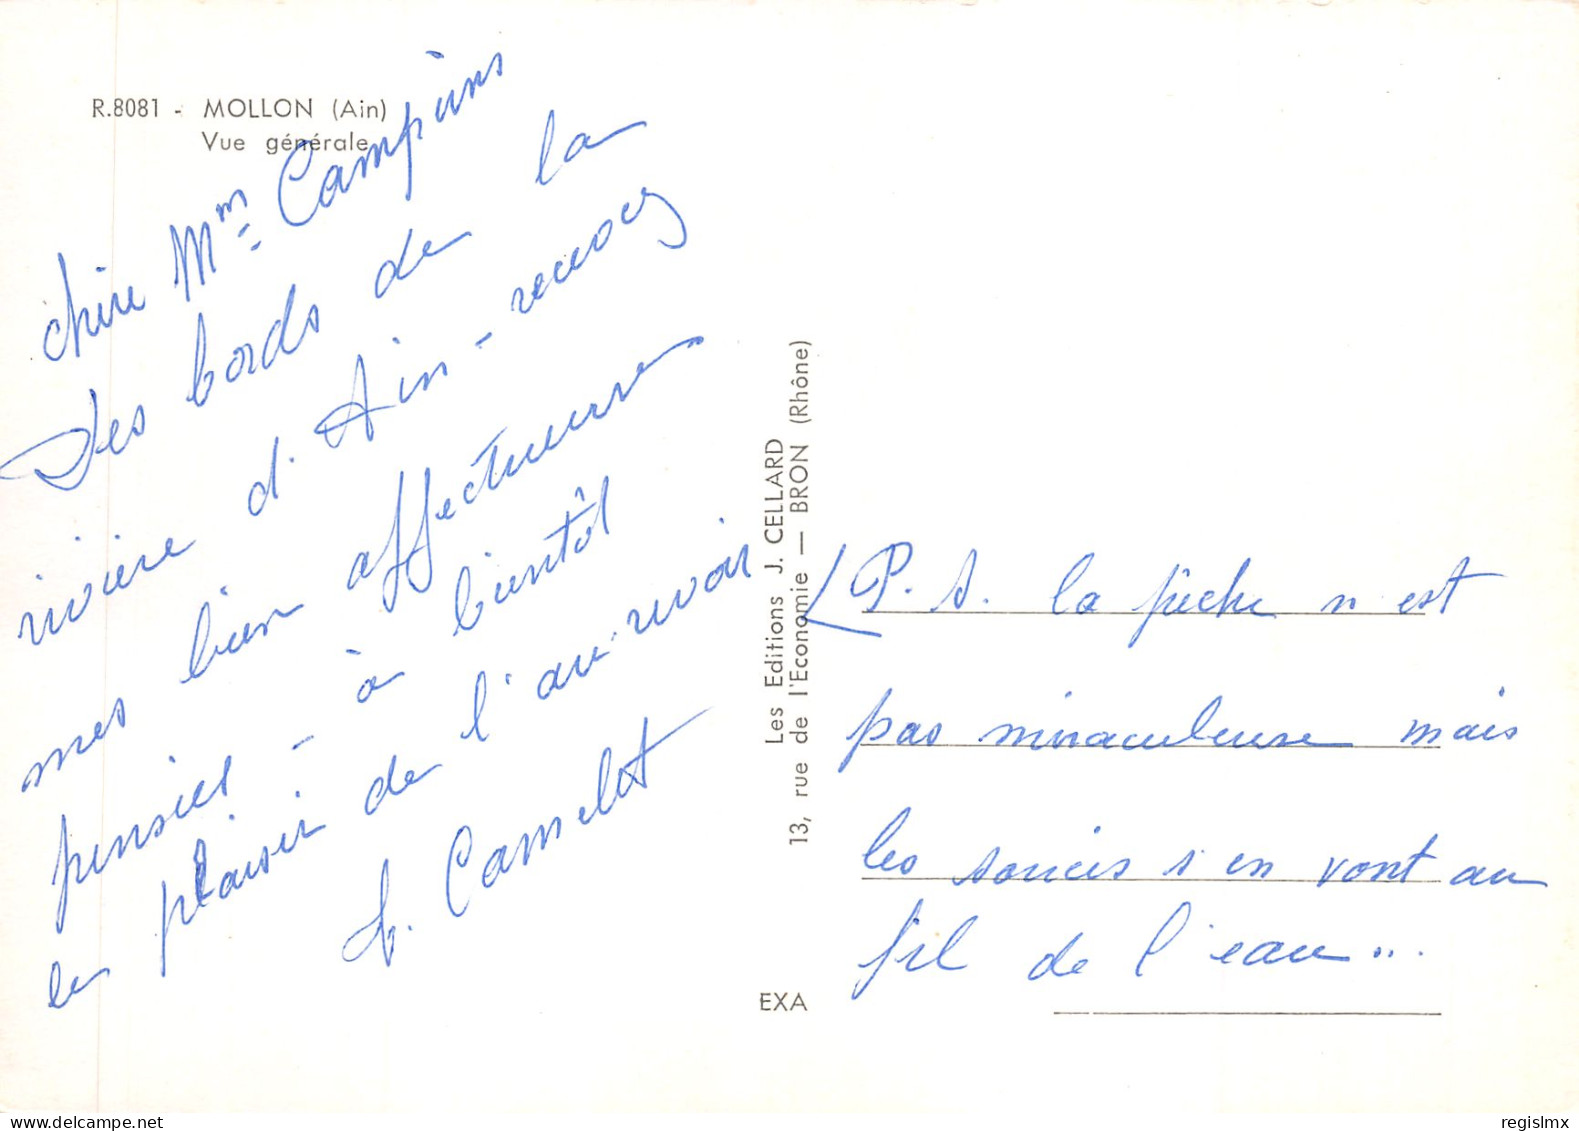 R.8081 - MOLLON (Ain)
Vue générale
chère Mme Campins
Des bords de la
rivière d'Ain - recevez
mes bien affectueuses
pensées - à bientôt
le plaisir de l'au revoir
Camelot
Les Editions J. CELLARD
13, rue de l'Economie — BRON (Rhône)
EXA
P.S. la pêche n'est
pas miraculeuse mais
les soucis s'en vont au
fil de l'eau...
regislmx